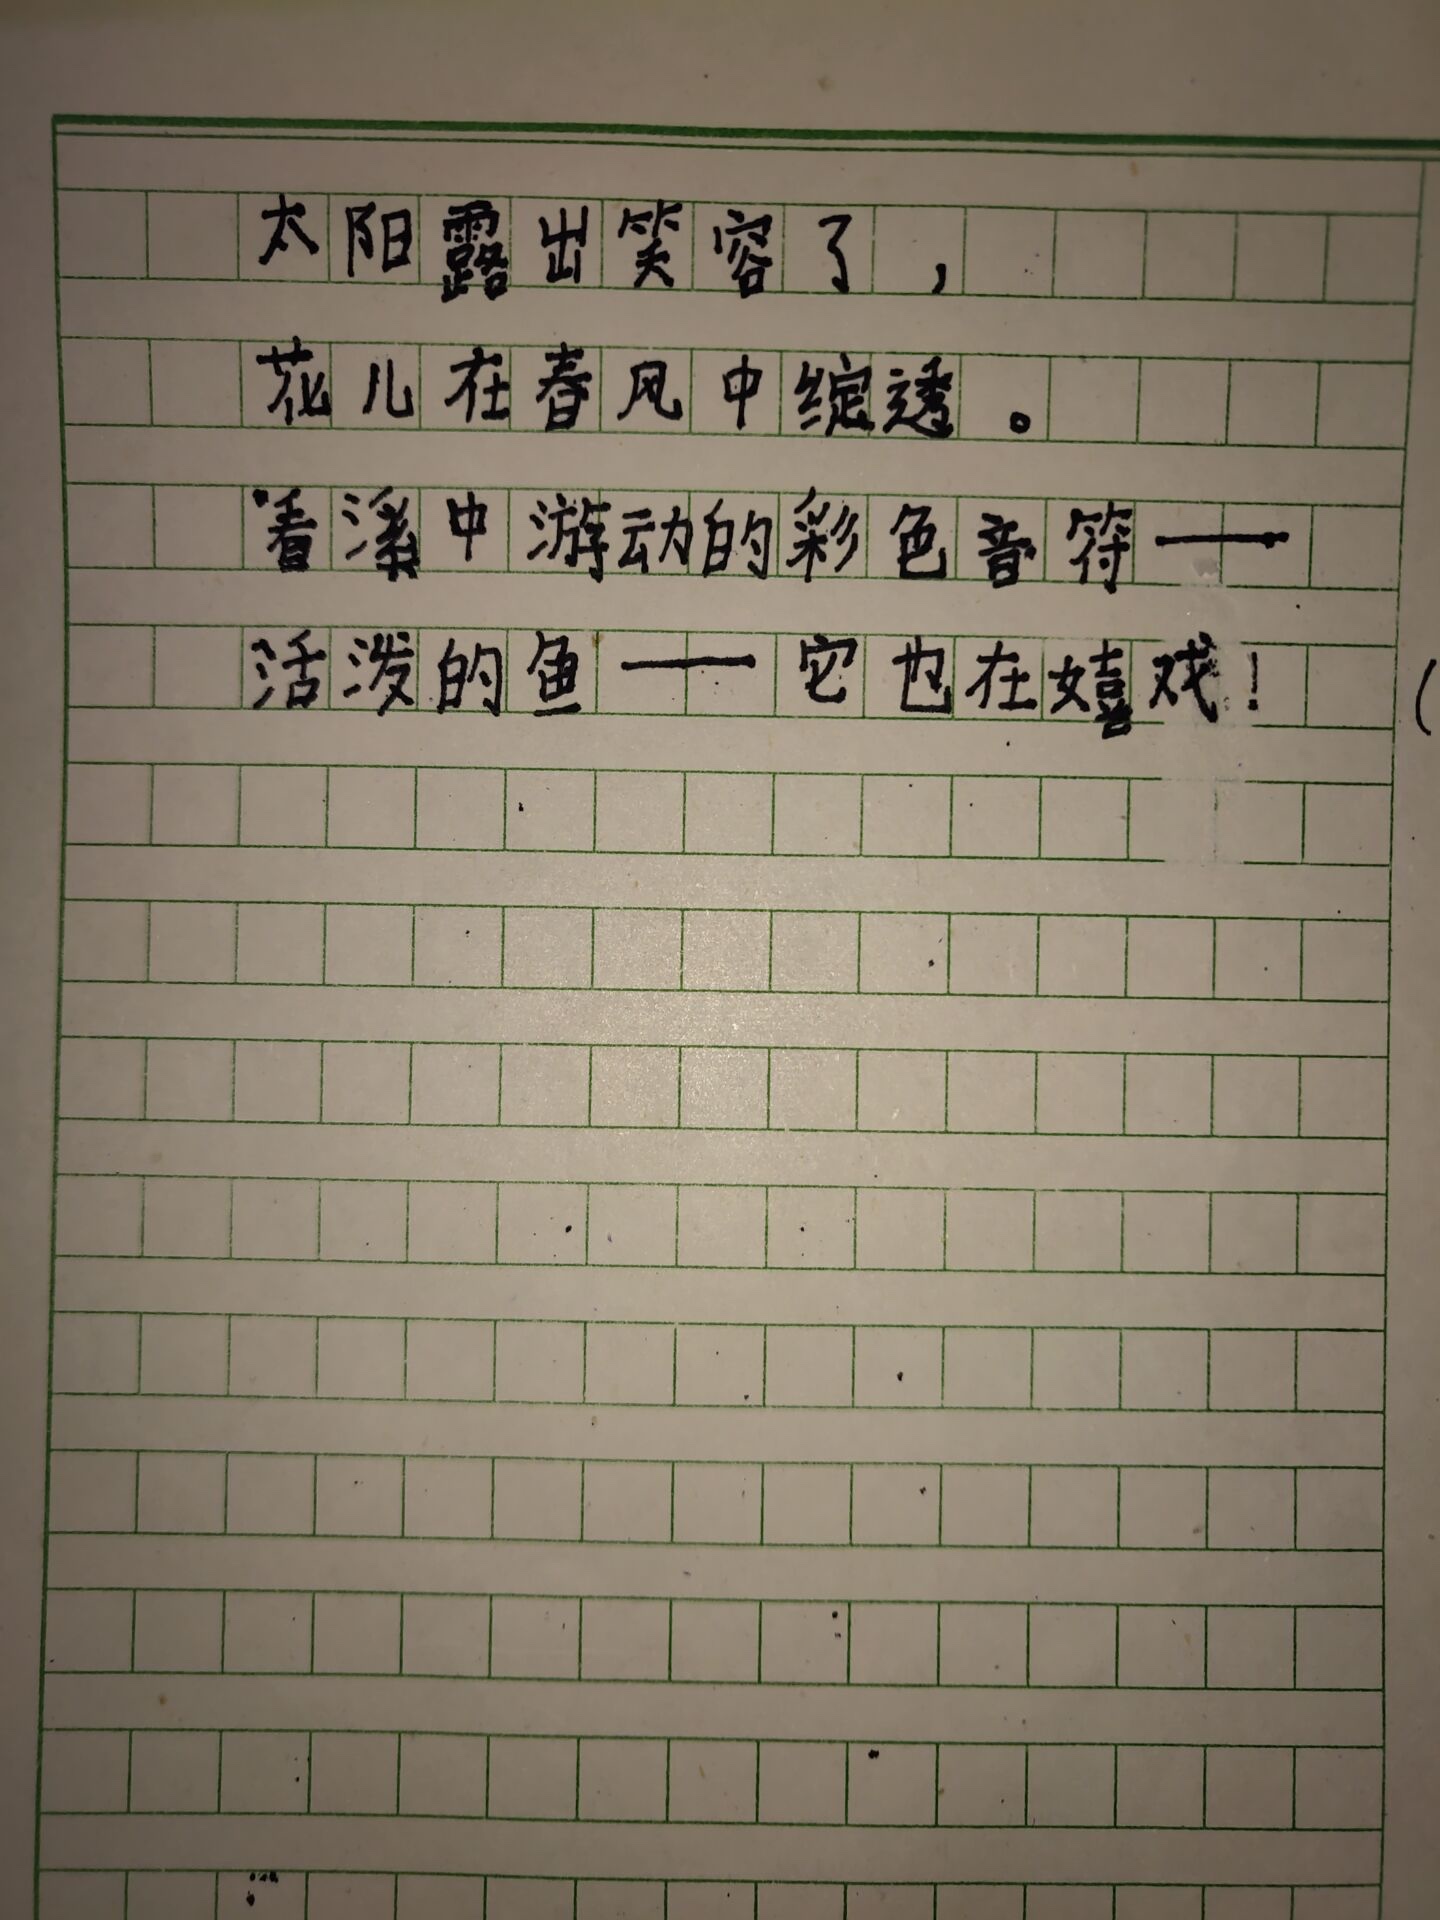 太阳露出笑容了，
花儿在春风中绽透。
看溪中游动的彩色音符——
活泼的鱼——它也在嬉戏！